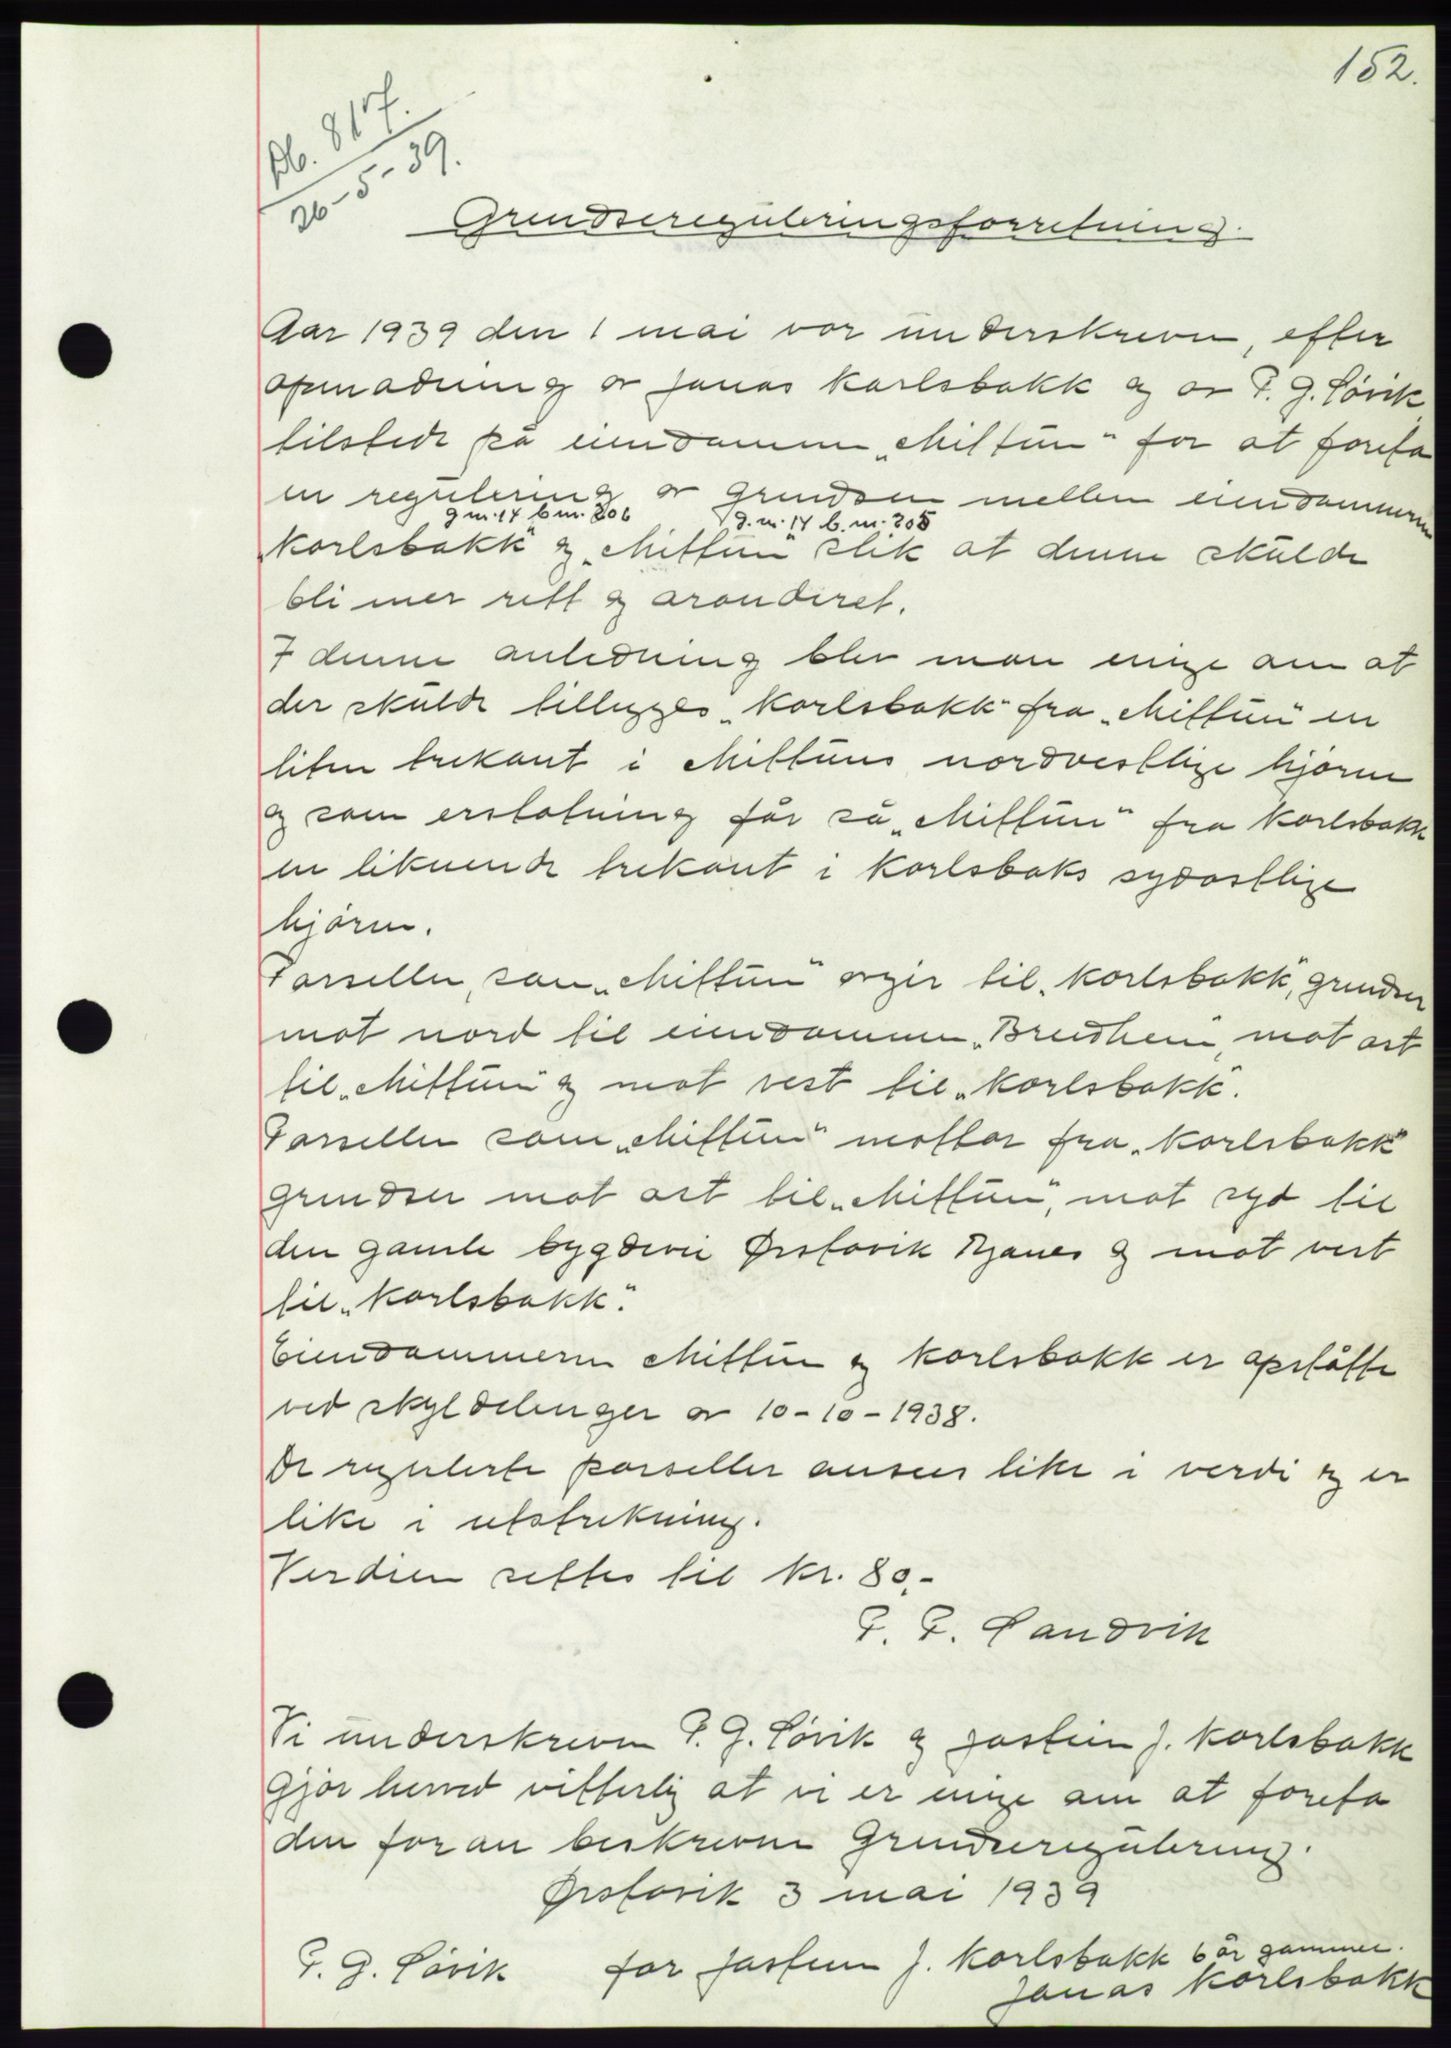 152.
Db. 817.
26-5-39.
Grundsereguleringsforretning.
Aar 1939 den 1 mai var underskreven, efter
opmadning av Jonas Karlsbakk og av P. G. Søvik
tilstede på eiendommen „Mittun" for at foreta
en regulering av grundsen mellem eiendommerne
g.nr. 14 b.nr. 206 g.nr. 14 b.nr. 205
„Karlsbakk" og „Mittun" slik at denne skulde
bli mer rett og arondiret.
I denne anledning blev man enige om at
der skulde tillegges „Karlsbakk" fra „Mittun" en
liten trekant i Mittuns nordvestlige hjørne
og som erstatning får så „Mittun" fra Karlsbakk
en liknende trekant i Karlsbaks sydøstlige
hjørne.
Parsellen, som „Mittun" avgir til „Karlsbakk", grundser
mot nord til eiendommen „Breidheim", mot øst
til „Mittun" og mot vest til „Karlsbakk".
Parsellen som „Mittun" mottar fra „Karlsbakk"
grundser mot øst til „Mittun", mot syd til
den gamle bygdevei Ørstavik Rjånes og mot vest
til „Karlsbakk".
Eiendommerne Mittun og Karlsbakk er opståtte
ved skyldelinger av 10-10-1938.
De regulerte parseller ansees like i verdi og er
like i utstrekning.
Verdien settes til kr. 80,-
P. P. Sandvik
Vi underskrevne P. G. Søvik og Jostein J. Karlsbakk
gjør herved vitterlig at vi er enige om at foreta
den foran beskrevne Grundseregulering.
Ørstavik 3 mai 1939
P. G. Søvik for Jostein J. Karlsbakk 6 år gammel.
Jonas Karlsbakk